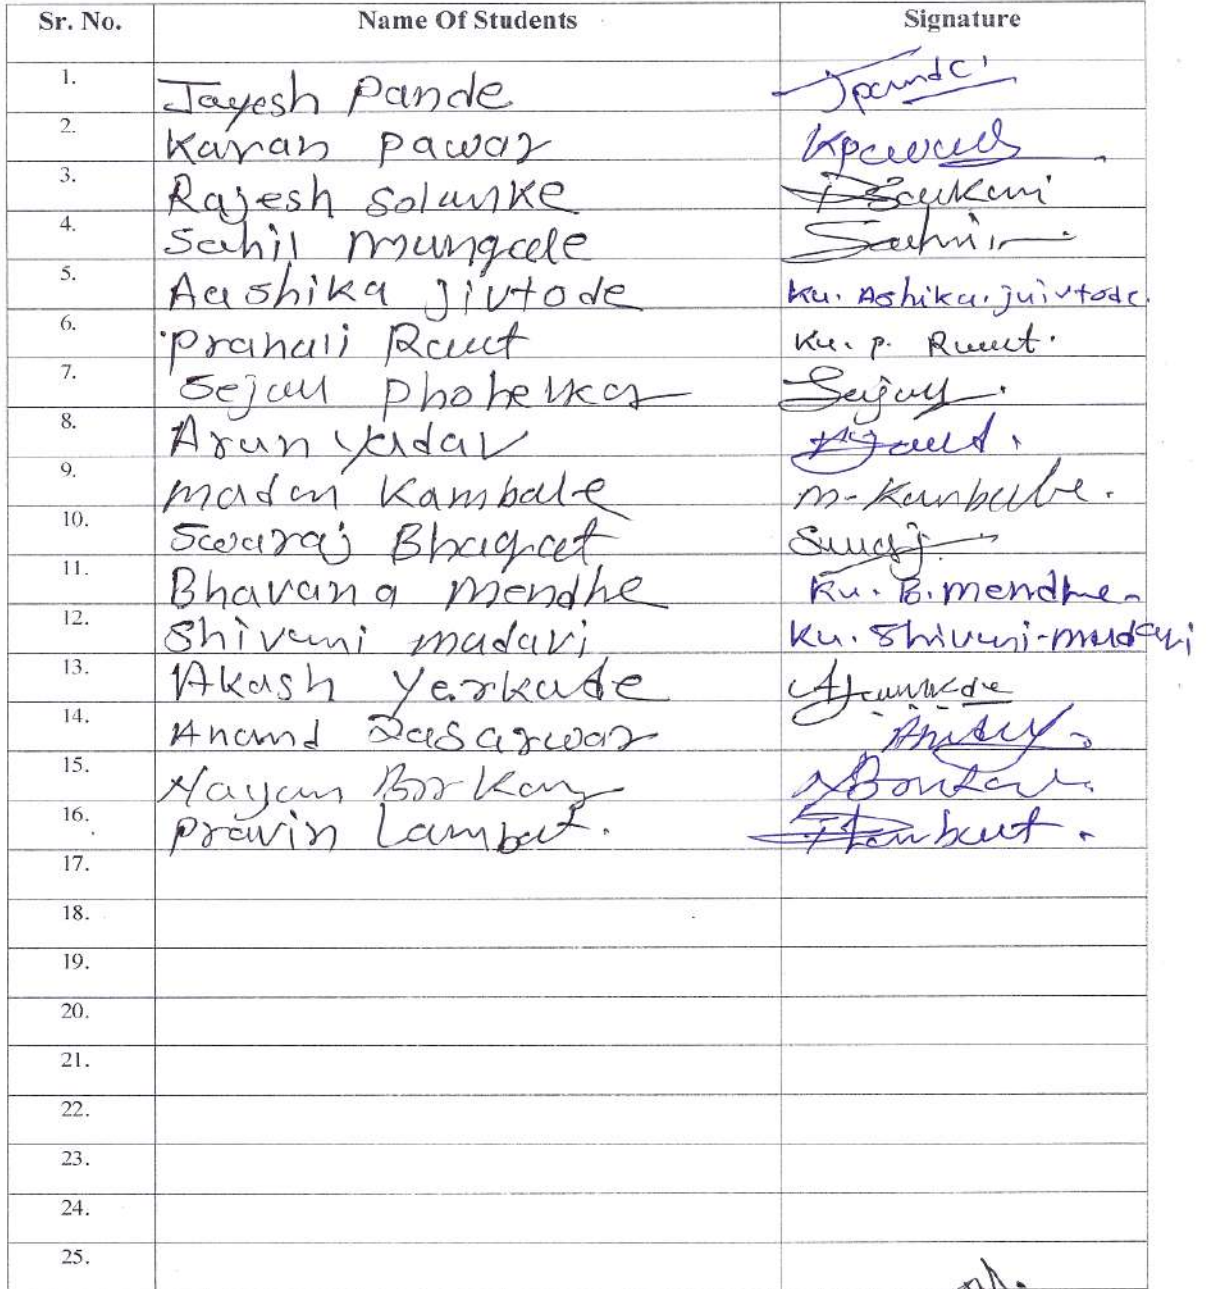 Sr. No. Name Of Students Signature
1. Jayesh Pande Jpande
2. Karan Pawar Kpawar
3. Rajesh Solunke
4. Sahil Mungale
5. Aashika Jivtode Ku. Ashika. juivtode.
6. Pranali Raut Ku. P. Raut.
7. Sejal Sejal
8. Arun Yadav
9. Madan Kambale m-Kambale.
10. Swaraj Bhagat
11. Bhavana Mendhe Ku. B. mendhe
12. Shivani madavi Ku. Shivani-madavi
13. Akash Yerkade
14. Anand Rasarwar
15. Nayan Borkar
16. Pravin Lambat.
17.
18.
19.
20.
21.
22.
23.
24.
25.